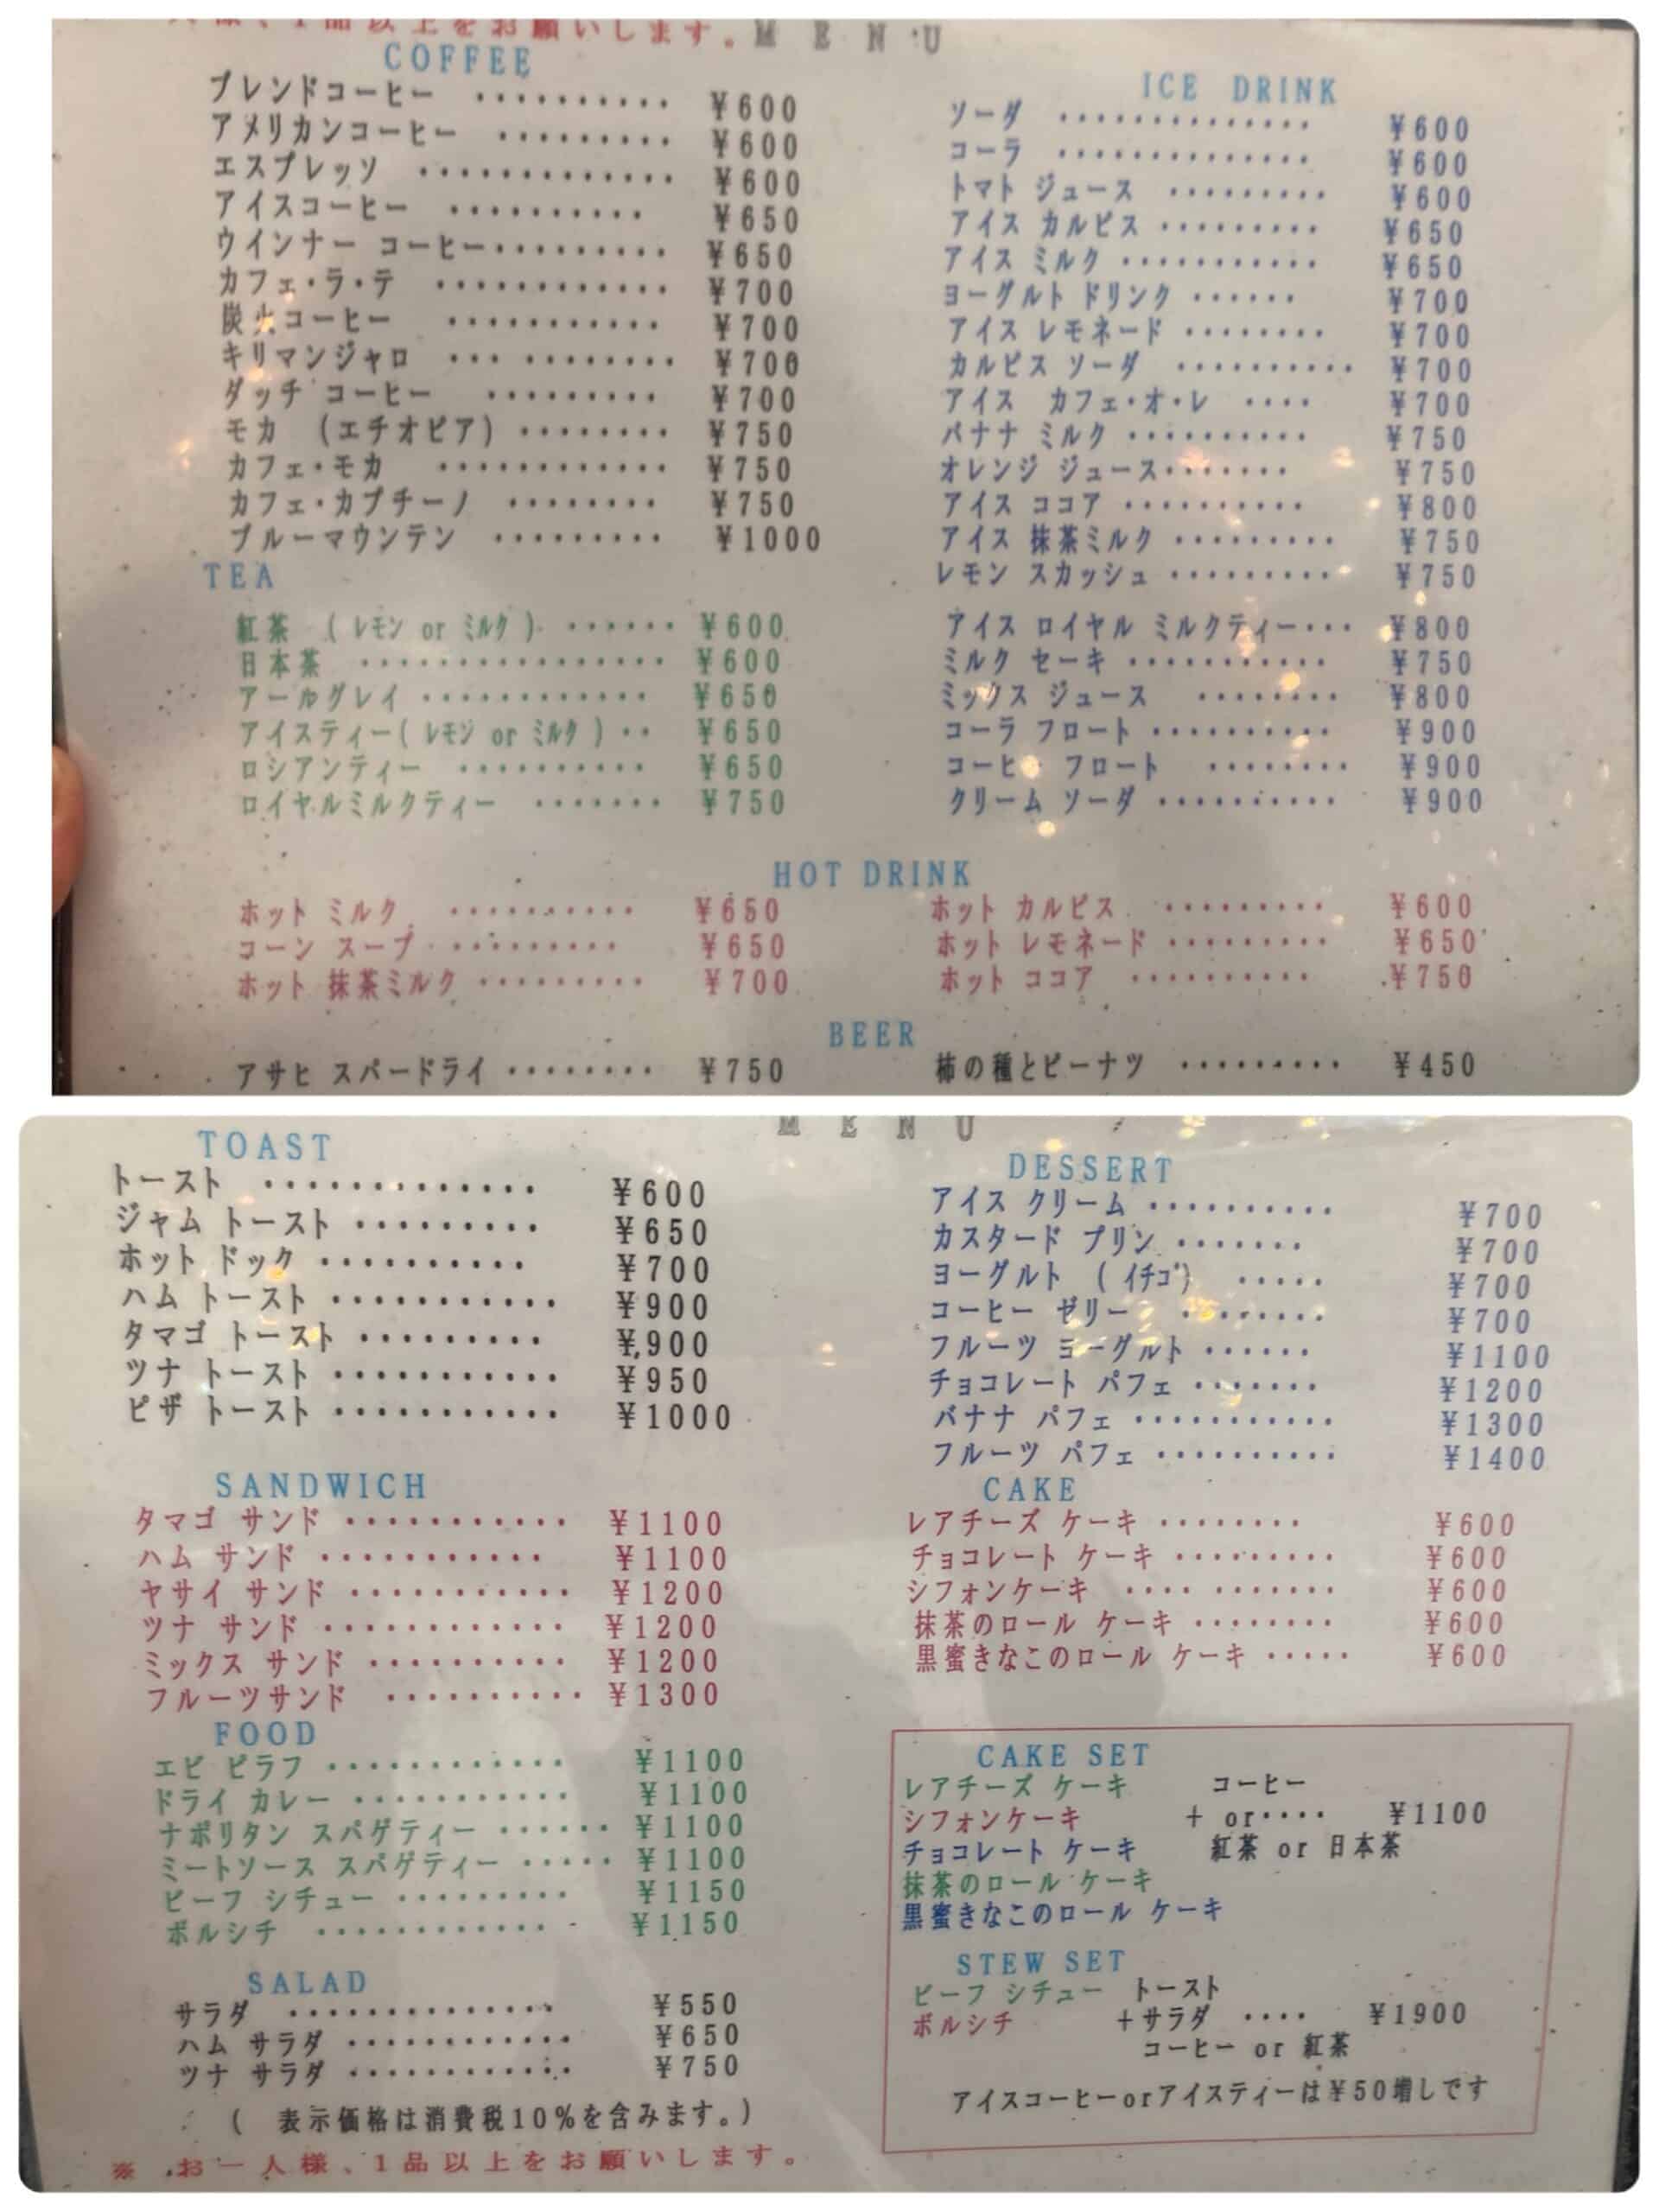 様、1品以上をお願いします。MENU
COFFEE
ブレンドコーヒー ・・・・・・・・・・ ¥600
アメリカンコーヒー ・・・・・・・・・ ¥600
エスプレッソ ・・・・・・・・・・・・・ ¥600
アイスコーヒー ・・・・・・・・・・ ¥650
ウインナー コーヒー・・・・・・・・・ ¥650
カフェ・ラ・テ ・・・・・・・・・・・・ ¥700
炭火コーヒー ・・・・・・・・・・・ ¥700
キリマンジャロ ・・・ ・・・・・・・・ ¥700
ダッチ コーヒー ・・・・・・・・・ ¥700
モカ (エチオピア) ・・・・・・・・ ¥750
カフェ・モカ ・・・・・・・・・・・・ ¥750
カフェ・カプチーノ ・・・・・・・・ ¥750
ブルーマウンテン ・・・・・・・・・ ¥1000
TEA
紅茶 (レモン or ミルク) ・・・・・・ ¥600
日本茶 ・・・・・・・・・・・・・・・・ ¥600
アールグレイ ・・・・・・・・・・・・ ¥650
アイスティー(レモン or ミルク) ・・ ¥650
ロシアンティー ・・・・・・・・・・ ¥650
ロイヤルミルクティー ・・・・・・・ ¥750
ICE DRINK
ソーダ ・・・・・・・・・・・・・・ ¥600
コーラ ・・・・・・・・・・・・・・ ¥600
トマト ジュース ・・・・・・・・・ ¥600
アイス カルピス ・・・・・・・・・ ¥650
アイス ミルク ・・・・・・・・・・・ ¥650
ヨーグルト ドリンク ・・・・・・ ¥700
アイス レモネード ・・・・・・・・ ¥700
カルピス ソーダ ・・・・・・・・・・ ¥700
アイス カフェ・オ・レ ・・・・ ¥700
バナナ ミルク ・・・・・・・・・・ ¥750
オレンジ ジュース・・・・・・・ ¥750
アイス ココア ・・・・・・・・・・ ¥800
アイス 抹茶ミルク ・・・・・・・・・ ¥750
レモン スカッシュ ・・・・・・・・・ ¥750
アイス ロイヤル ミルクティー・・・ ¥800
ミルク セーキ ・・・・・・・・・・・ ¥750
ミックス ジュース ・・・・・・・・ ¥800
コーラ フロート ・・・・・・・・・・ ¥900
コーヒー フロート ・・・・・・・・ ¥900
クリーム ソーダ ・・・・・・・・・・ ¥900
HOT DRINK
ホット ミルク ・・・・・・・・・・ ¥650
コーン スープ ・・・・・・・・・・ ¥650
ホット 抹茶ミルク ・・・・・・・・・ ¥700
ホット カルピス ・・・・・・・・・ ¥600
ホット レモネード ・・・・・・・・・ ¥650
ホット ココア ・・・・・・・・・・ ¥750
BEER
アサヒ スパードライ ・・・・・・・・ ¥750
柿の種とピーナツ ・・・・・・・・・ ¥450
MENU
TOAST
トースト ・・・・・・・・・・・・・ ¥600
ジャム トースト ・・・・・・・・・ ¥650
ホット ドック ・・・・・・・・・・ ¥700
ハム トースト ・・・・・・・・・・・ ¥900
タマゴ トースト ・・・・・・・・・ ¥900
ツナ トースト ・・・・・・・・・・・ ¥950
ピザ トースト ・・・・・・・・・・・ ¥1000
SANDWICH
タマゴ サンド ・・・・・・・・・・・ ¥1100
ハム サンド ・・・・・・・・・・・ ¥1100
ヤサイ サンド ・・・・・・・・・・・ ¥1200
ツナ サンド ・・・・・・・・・・・・ ¥1200
ミックス サンド ・・・・・・・・・・ ¥1200
フルーツサンド ・・・・・・・・・・ ¥1300
FOOD
エビ ピラフ ・・・・・・・・・・・・ ¥1100
ドライ カレー ・・・・・・・・・・・ ¥1100
ナポリタン スパゲティー ・・・・・・ ¥1100
ミートソース スパゲティー ・・・・・ ¥1100
ビーフ シチュー ・・・・・・・・・ ¥1150
ボルシチ ・・・・・・・・・・・・ ¥1150
SALAD
サラダ ・・・・・・・・・・・・・・ ¥550
ハム サラダ ・・・・・・・・・・・・ ¥650
ツナ サラダ ・・・・・・・・・・・・ ¥750
( 表示価格は消費税10%を含みます。)
※ お一人様、1品以上をお願いします。
DESSERT
アイス クリーム ・・・・・・・・・・ ¥700
カスタード プリン ・・・・・・・ ¥700
ヨーグルト (イチゴ) ・・・・・ ¥700
コーヒー ゼリー ・・・・・・・・ ¥700
フルーツ ヨーグルト ・・・・・・ ¥1100
チョコレート パフェ ・・・・・・・ ¥1200
バナナ パフェ ・・・・・・・・・・・ ¥1300
フルーツ パフェ ・・・・・・・・・・ ¥1400
CAKE
レアチーズ ケーキ ・・・・・・・・ ¥600
チョコレート ケーキ ・・・・・・・・・ ¥600
シフォンケーキ ・・・・ ・・・・・・・ ¥600
抹茶のロール ケーキ ・・・・・・・・ ¥600
黒蜜きなこのロール ケーキ ・・・・・ ¥600
CAKE SET
レアチーズ ケーキ コーヒー
シフォンケーキ + or・・・・ ¥1100
チョコレート ケーキ 紅茶 or 日本茶
抹茶のロール ケーキ
黒蜜きなこのロール ケーキ
STEW SET
ビーフ シチュー トースト
ボルシチ +サラダ ・・・・ ¥1900
コーヒー or 紅茶
アイスコーヒーorアイスティーは¥50増しです